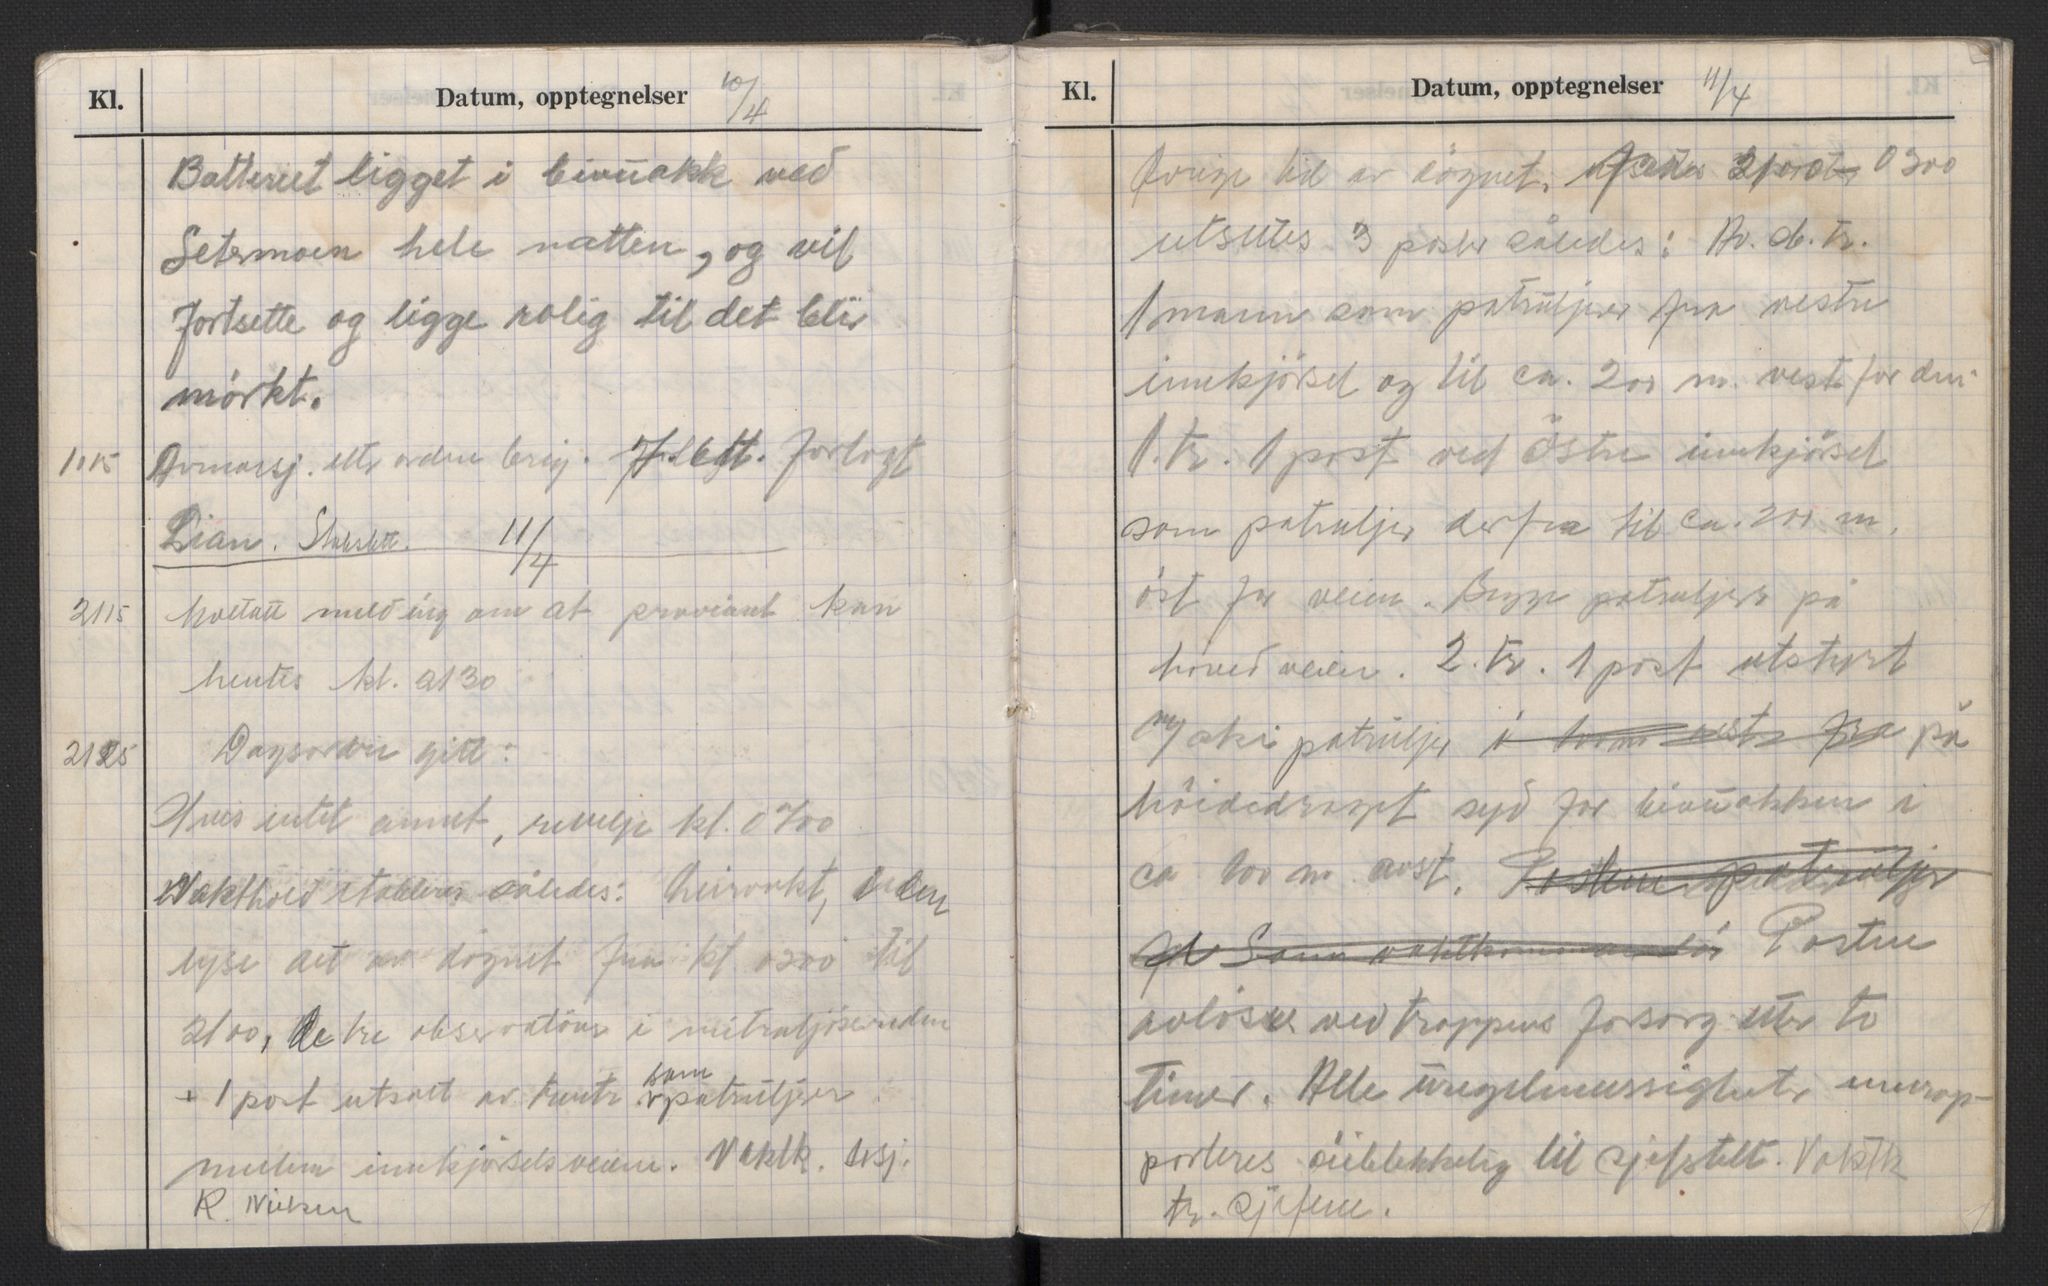 Kl.
Datum, opptegnelser 10/4
Batteriet ligget i bivuakk ved
Setermoen hele natten, og vil
fortsette og ligge rolig til det blir
mörkt.
1015 Avmarsj. etter ordre brig. Forlagt
Lian. 11/4
2115 Mottatt melding om at proviant kan
hentes kl. 2130
2125 Dagsordre gitt:
Hvis intet annet, revelje kl. 0700
Vakthold etableres således: Luftvakt, i den
lyse del av dögnet fra kl 0300 til
2100, De tre observatörer i mitraljöseredene
+ 1 post utsatt av som patruljerer
mellem innkjörselsveiene. Vaktk. sersj.
R. Nielsen
Kl.
Datum, opptegnelser 11/4
Övrige tid av dögnet. 0300
utsettes 3 poster således: Av. d. tr.
1 mann som patruljerer fra vestre
innkjörsel og til ca. 200 m. vest for den
1. tr. 1 post ved östre innkjörsel
som patruljer derfra til ca. 200 m.
öst for veien. Begge patruljerer på
hovedveien. 2. tr. 1 post utstyrt
m/ ski patruljer i 100 m vest fra på
höidedraget syd for bivuakken i
ca 100 m avst. Posten patruljer
Som vaktkommandör Postene
avlöses ved troppens forsorg etter to
timer. Alle uregelmessigheter innrap-
porteres öieblikkelig til sjefstelt. Vaktk
tr. sjefene.